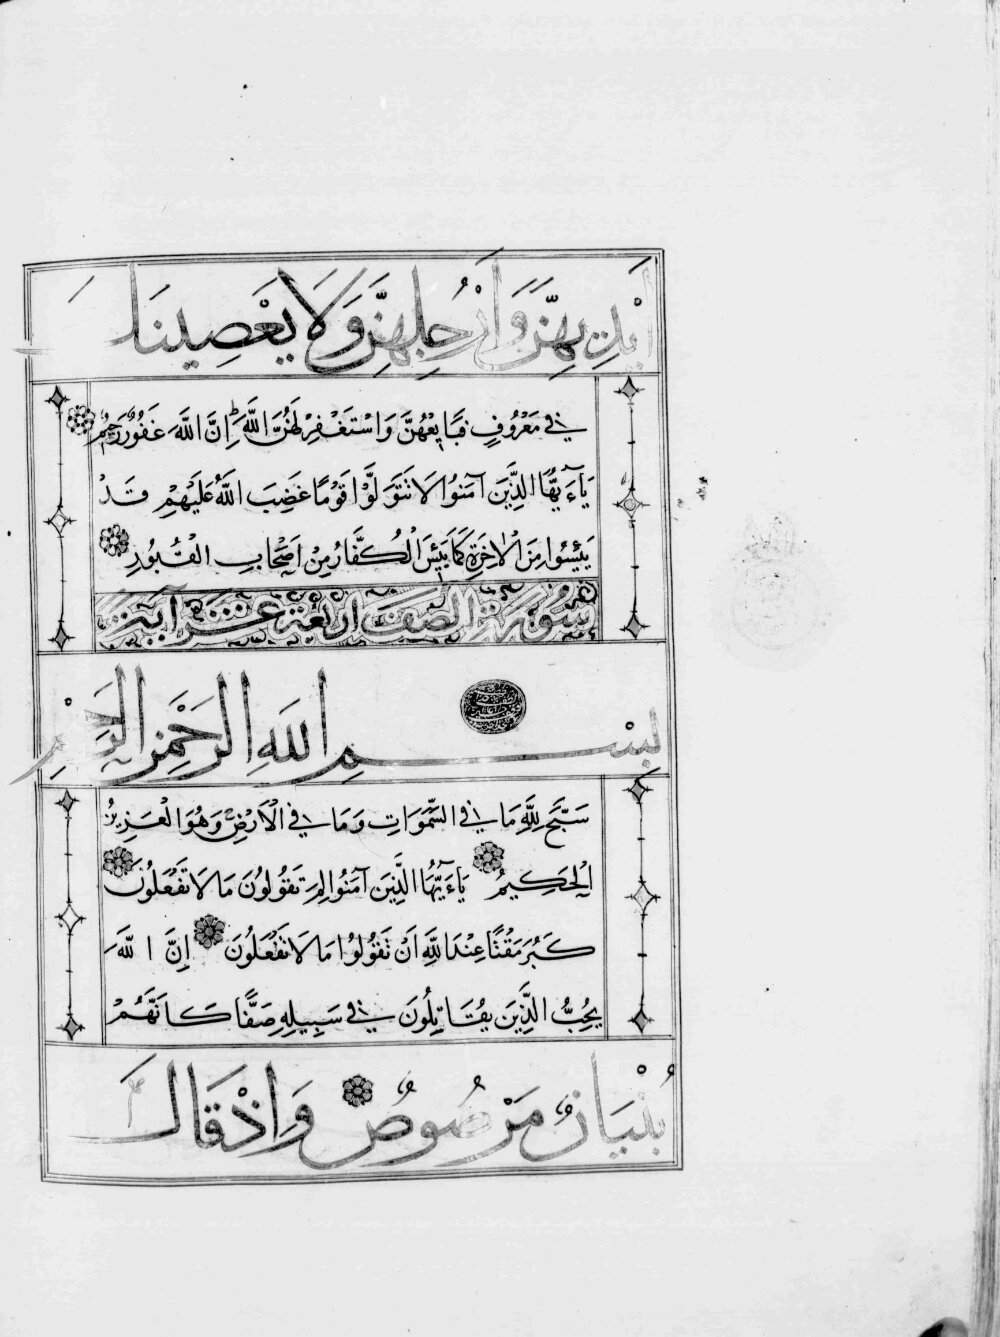 اَيْدِيهِنَّ وَاَرْجُلِهِنَّ وَلَا يَعْصِينَكَ
فِي مَعْرُوفٍ فَبَايِعْهُنَّ وَاسْتَغْفِرْ لَهُنَّ اللَّهَ اِنَّ اللَّهَ غَفُورٌ رَحِيمٌ
يَاءَيُّهَا الَّذِينَ آمَنُوا لَا تَتَوَلَّوْا قَوْمًا غَضِبَ اللَّهُ عَلَيْهِمْ قَدْ
يَئِسُوا مِنَ الْاٰخِرَةِ كَمَا يَئِسَ الْكُفَّارُ مِنْ اَصْحَابِ الْقُبُورِ
سُورَةُ الصَّف اربعة عشر آية
بِسْمِ اللَّهِ الرَّحْمٰنِ الرَّحِيمِ
سَبَّحَ لِلَّهِ مَا فِي السَّمَوَاتِ وَمَا فِي الْاَرْضِ وَهُوَ الْعَزِيزُ
الْحَكِيمُ يَاءَيُّهَا الَّذِينَ آمَنُوا لِمَ تَقُولُونَ مَا لَا تَفْعَلُونَ
كَبُرَ مَقْتًا عِنْدَ اللَّهِ اَنْ تَقُولُوا مَا لَا تَفْعَلُونَ اِنَّ اللَّهَ
يُحِبُّ الَّذِينَ يُقَاتِلُونَ فِي سَبِيلِهِ صَفًّا كَاَنَّهُمْ
بُنْيَانٌ مَرْصُوصٌ وَاِذْ قَالَ